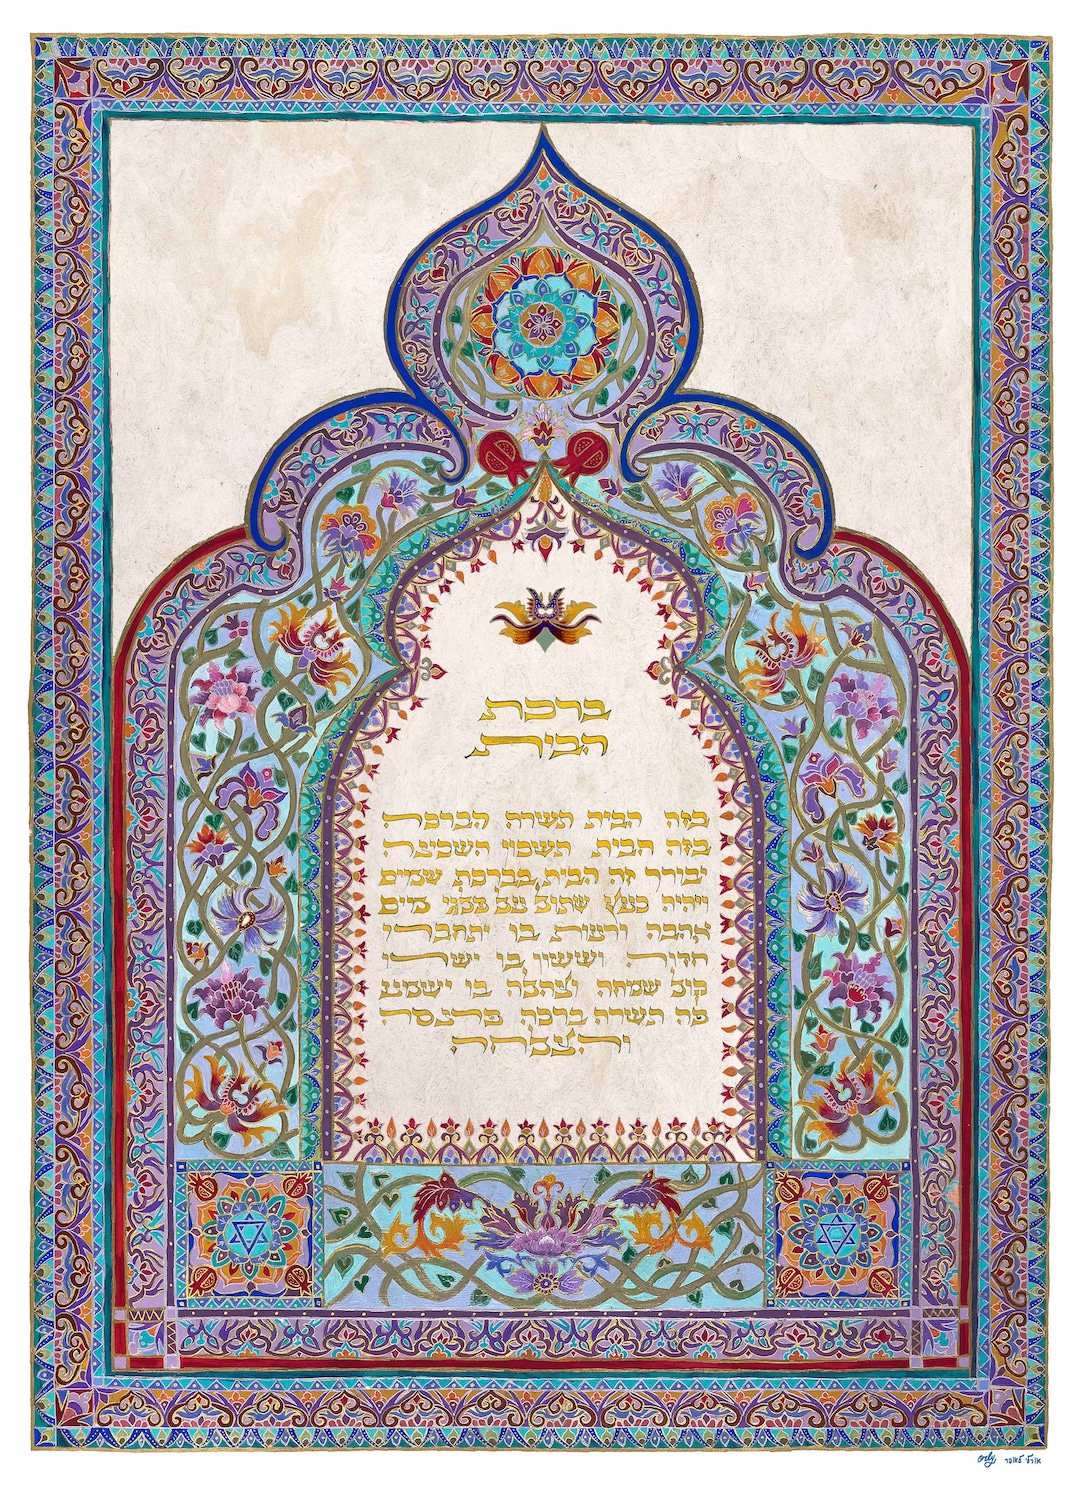 ברכת
הבית
בזה הבית תשרה הברכה
בזה הבית תשכון השכינה
יבורך זה הבית מברכת שמים
ויהיה כעץ שתול על פלגי מים
אהבה ורעות בו יתחברו
חדוה וששון בו ישרו
קול שמחה וצהלה בו ישמע
פה תשרה ברכה פרנסה
והצלחה
Orly אורלי